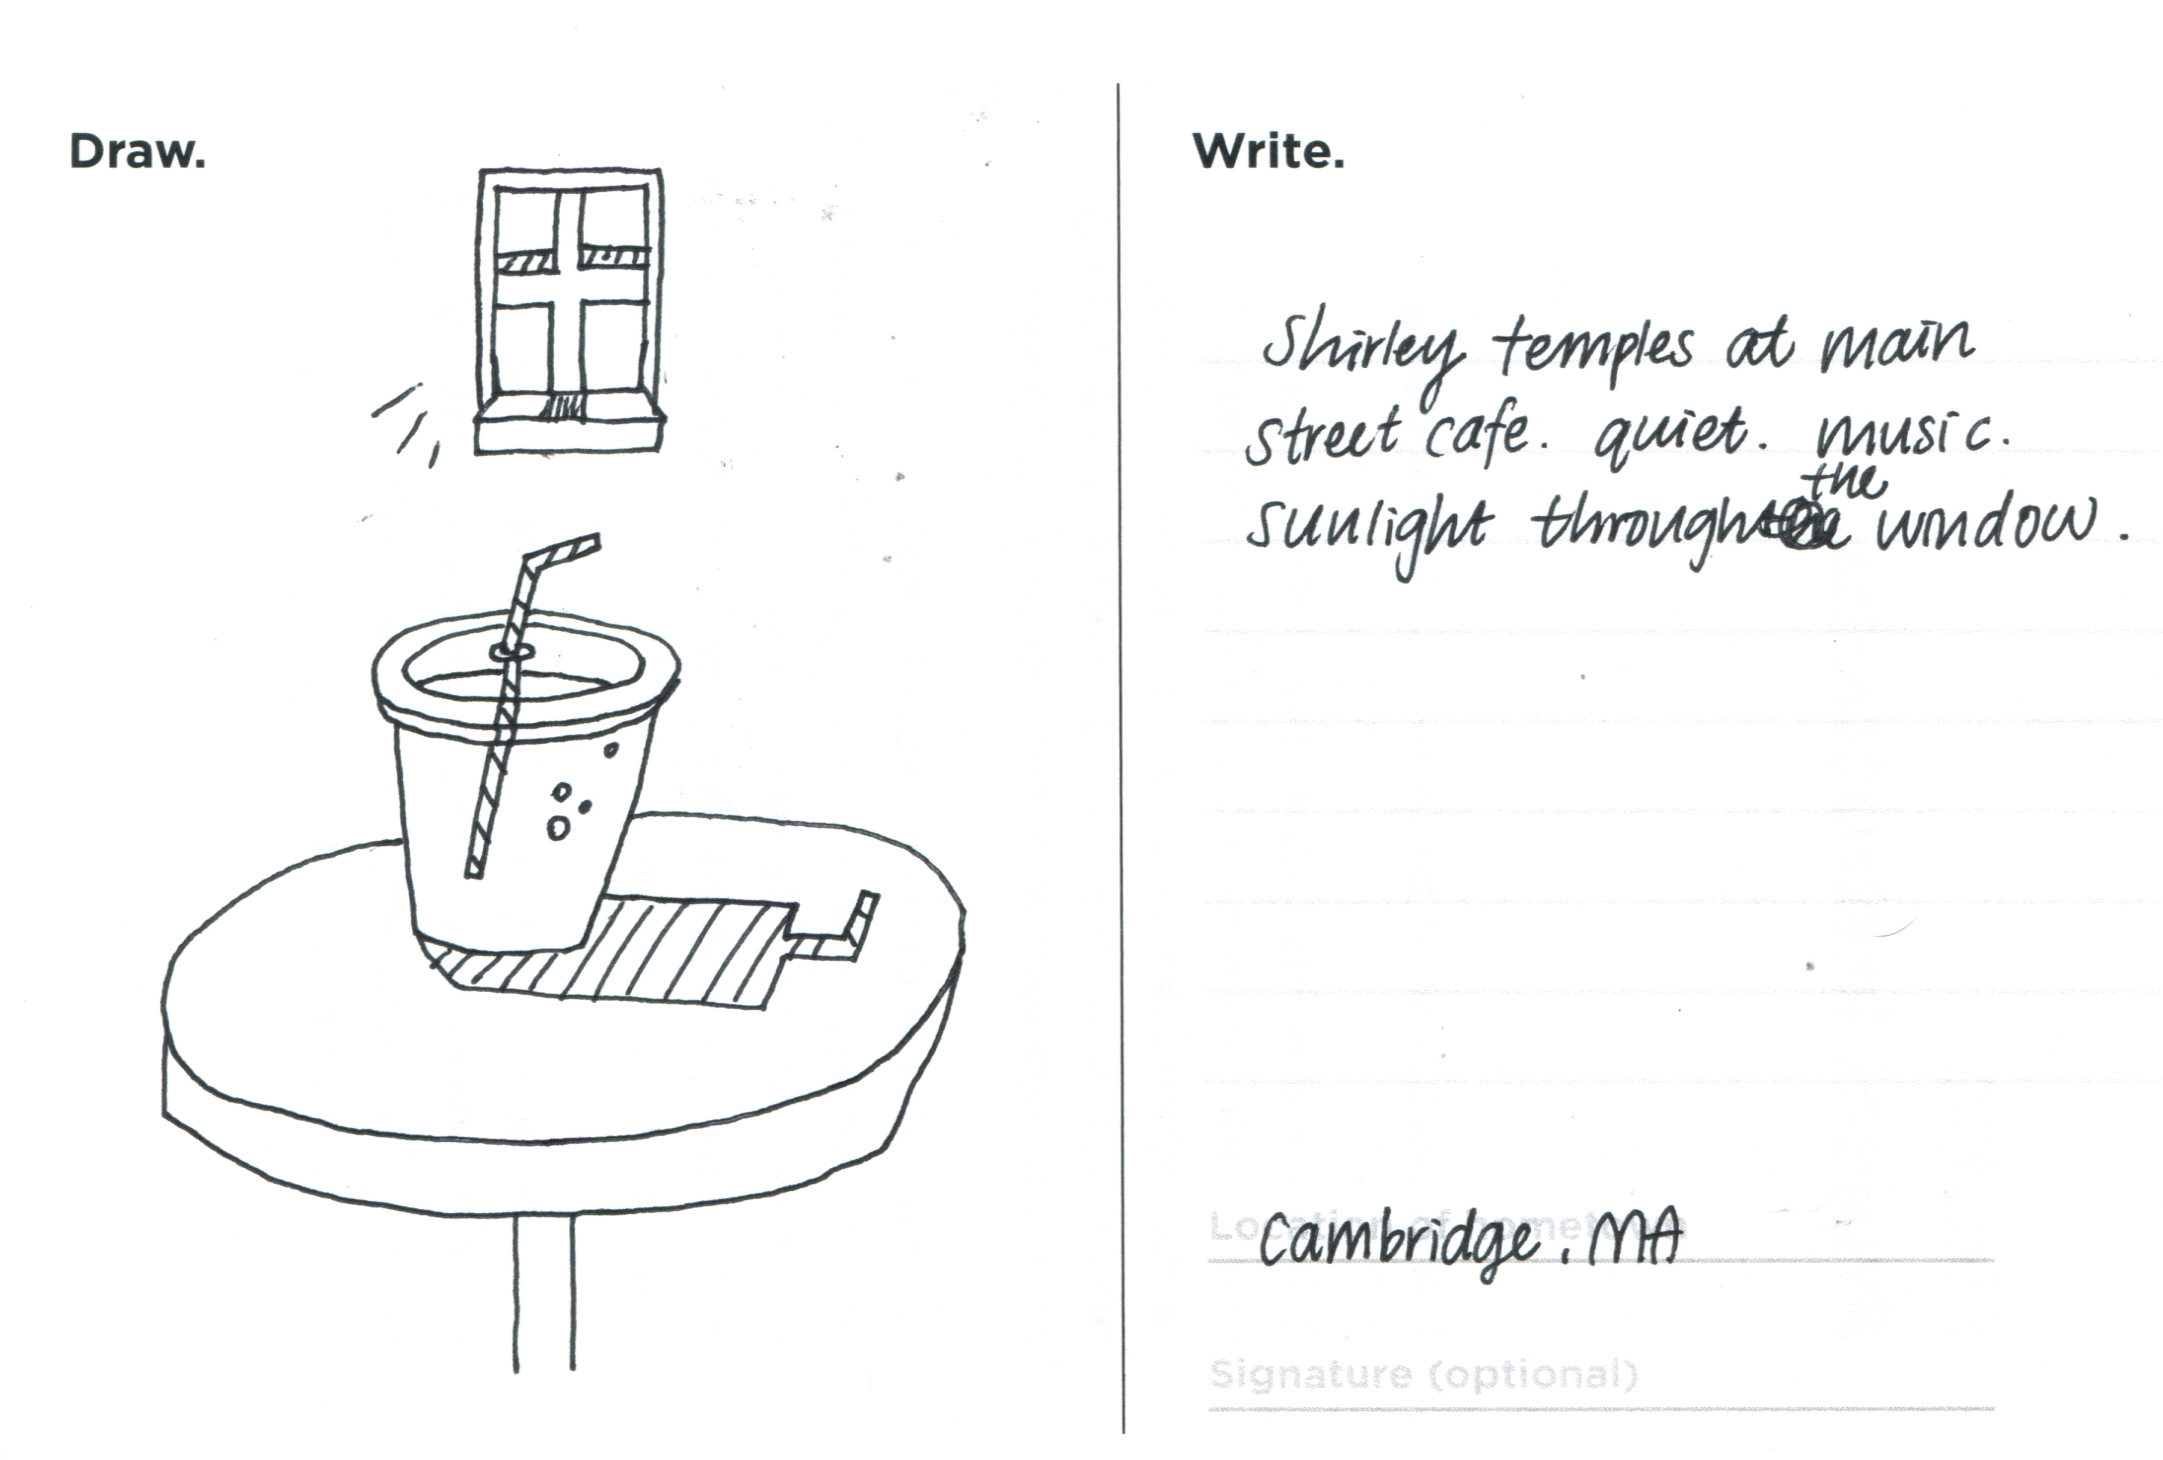 Draw.
Write.
Shirley temples at main
street cafe. quiet. music.
sunlight through the window.
Location of hometown
Cambridge. MA
Signature (optional)